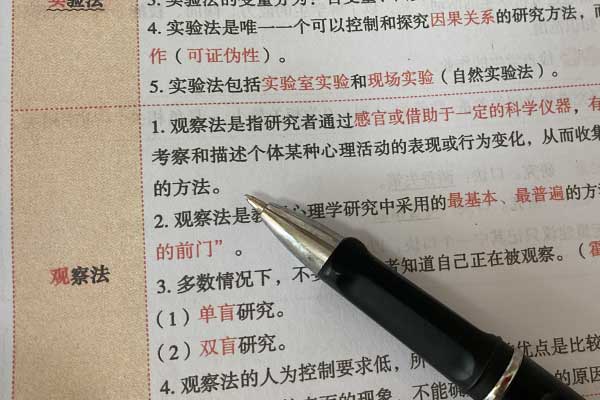 实验法
3. 实验法的变量分为：自变量、
4. 实验法是唯一一个可以控制和探究因果关系的研究方法，
作（可证伪性）。
5. 实验法包括实验室实验和现场实验（自然实验法）。
观察法
1. 观察法是指研究者通过感官或借助于一定的科学仪器，有
考察和描述个体某种心理活动的表现或行为变化，从而收集
的方法。
2. 观察法是 心理学研究中采用的最基本、最普遍的方
的前门”。
3. 多数情况下，不 者知道自己正在被观察。（霍
（1）单盲研究。
（2）双盲研究。
4. 观察法的人为控制要求低，所 优点是比较
面的现象，不能确 的原因